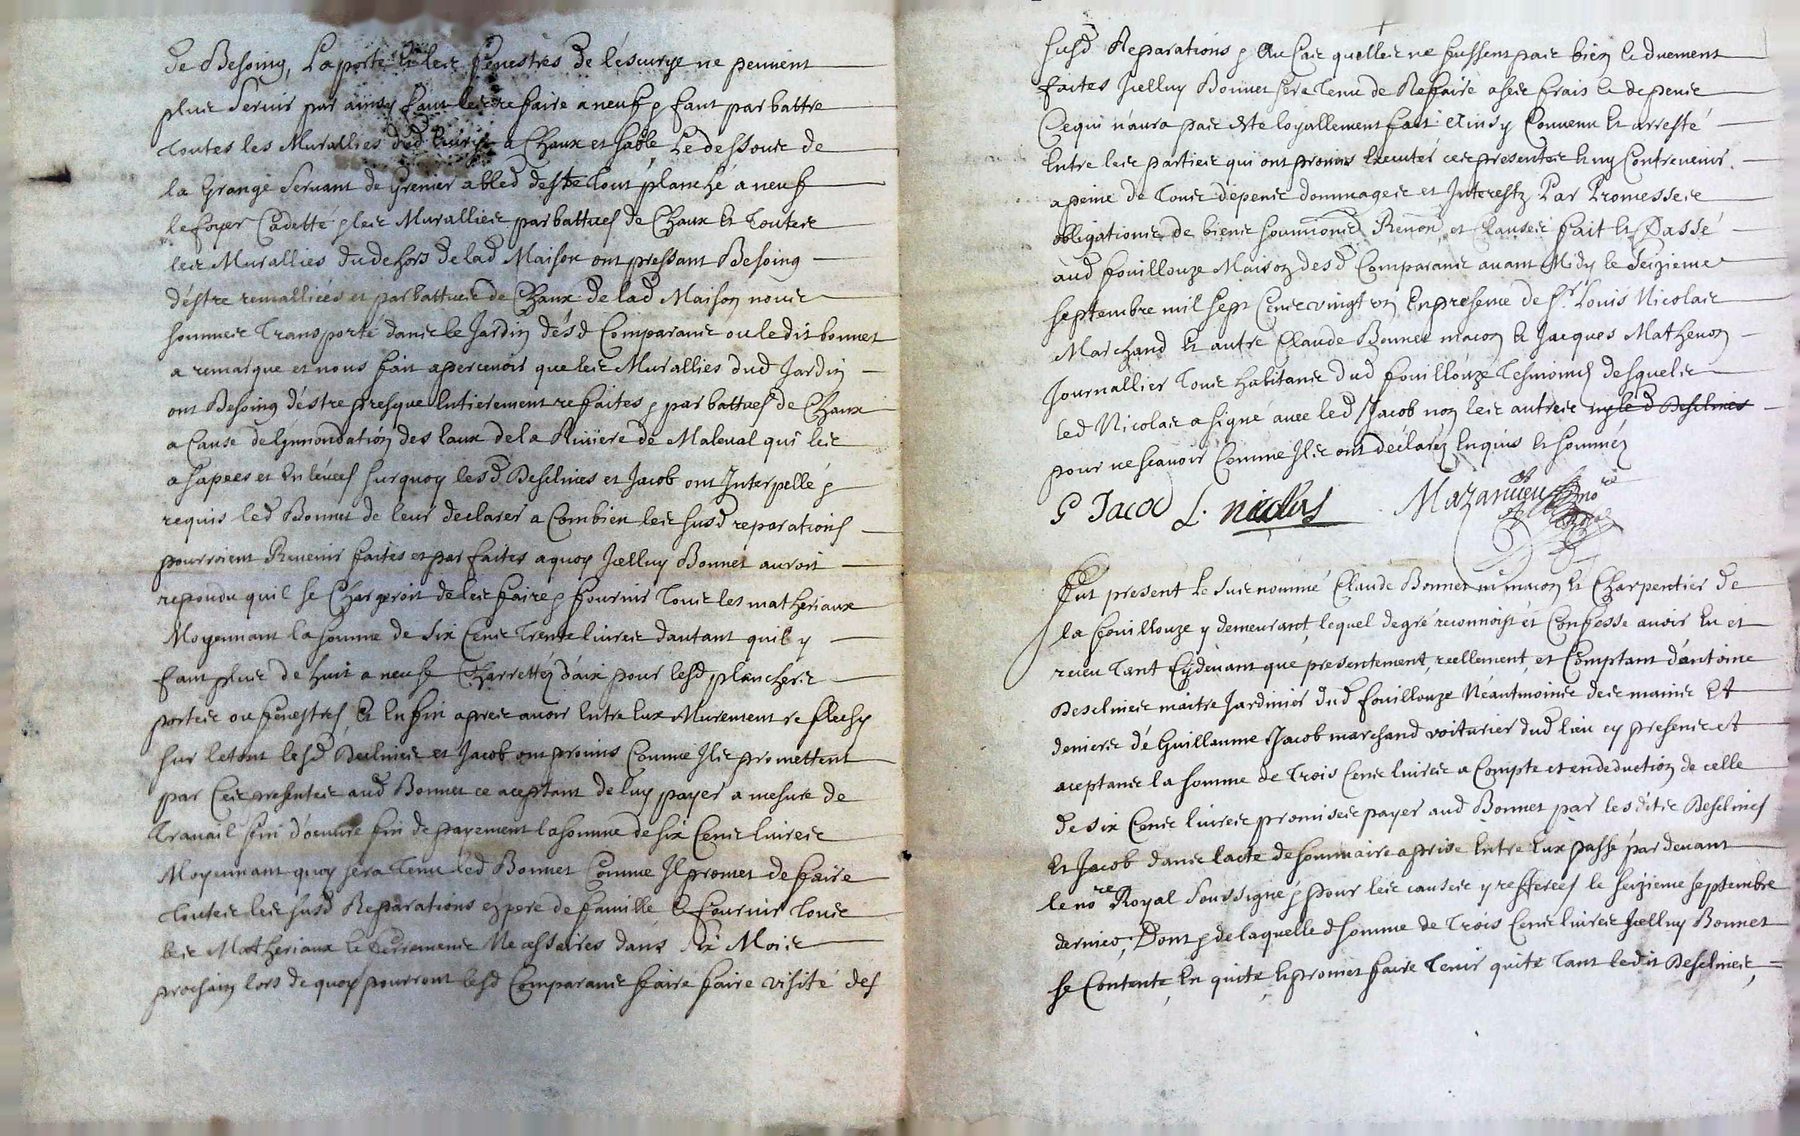 de Besoing, La porte et les fenestres de l'escurye ne peuvent
plus servir par ainsy faut les refaire a neuf & faut parbattre
toutes les Murallies dud. a Chaux et sable Le dessous de
la Grange servant de Grenier a bled destre tout planché a neuf
le foyer Cadetté & les Murallies parbattues de Chaux et toutes
les Murallies du dehors de lad Maison ont pressant Besoing
d'estre remalliées et parbattues de Chaux de lad Maison nous
sommes transporté dans le Jardin desd Comparans ou ledit bonnet
a remarque et nous fait apercevoir que les Murallies dud Jardin
ont Besoing d'estre presque Entierement refaites & parbattues de Chaux
a Cause de Lynnondation des Eaux de la Riviere de Maleval qui les
a sapees et Enlevees surquoy lesd. Deselmes et Jacob ont Interpellé &
requis led Bonnet de leur declarer a Combien les susd reparations
pourroient Revenir faites et parfaites a quoy Jcelluy Bonnet auroit
repondu quil se Chargeroit de les faire & fournir Tous les matheriaux
Moyennant la somme de six Cens Trente livres dautant quil y
faut plus de huit a neuf Charrettes d'aix pour lesd planchers
portes ou fenestres Et Enfin apres avoir Entre Eux Murement reflechy
sur letout lesd Deselmes et Jacob ont promis Comme Ils promettent
par Ces presentes aud Bonnet ce aceptant de luy payer a mesure de
travail fini d'oeuvre fin de payement la somme de six Cens livres
Moyennant quoy sera tenu led Bonnet Comme Il promet de faire
toutes les susd Reparations en pere de famille & fournir tous
les Matheriaux & ferremens Necessaires dans six Mois
prochain lors de quoy pourront lesd Comparans faire faire visité des
susd Reparations & Au Cas quelles ne fussent pas bien & duement
faites Jcelluy Bonnet sera Tenu de Refaire a ses frais & depens
Ce qui n'aura pas esté loyallement fait Ainsy Convenu Et arresté
Entre les parties qui ont promis Executer ces presentes & ny Contrevenir
a peine de Tous depens dommages et Interests Par Promesses
obligations de biens soumions Renon et Clauses fait Et Passé
aud fouillouze Maison desd Comparans avant Midy le Seizieme
septembre mil sept Cens vingt un En presence de Sr. Louis Nicolas
Marchand et autre Claude Bonnet macon & Jacques Mathevon
Journallier tous habitans dud fouillouze Tesmoins desquels
led Nicolas a signé avec led Jacob non les autres ny led Deselmes
pour ne scavoir Comme Ils ont déclaré Enquis Et sommés
G Jacob L. nicolas Mazanieu nore
Fut present Le susnommé Claude Bonnet me macon & Charpentier de
la Fouillouze y demeurant, lequel de gré reconnoist et Confesse avoir Eu et
receu tant Cydevant que presentement, reellement et Comptant d'antoine
Deselmes maitre Jardinier dud fouillouze Néantmoins des mains Et
deniers de Guillaume Jacob marchand voiturier dud lieu cy presens et
aceptans la somme de Trois Cens livres a Compte et en deduction de celle
de six Cens livres promises payer aud Bonnet par lesdits Deselmes
Et Jacob dans l'acte desommaire aprise Entre Eux passé par devant
le nore Royal soussigné & pour les causes y refferees le seizieme septembre
dernier, Dont & de laquelle d somme de Trois Cens livres Jcelluy Bonnet
se Contente, En quitte & promet faire Tenir quitte tant ledit Deselmes,